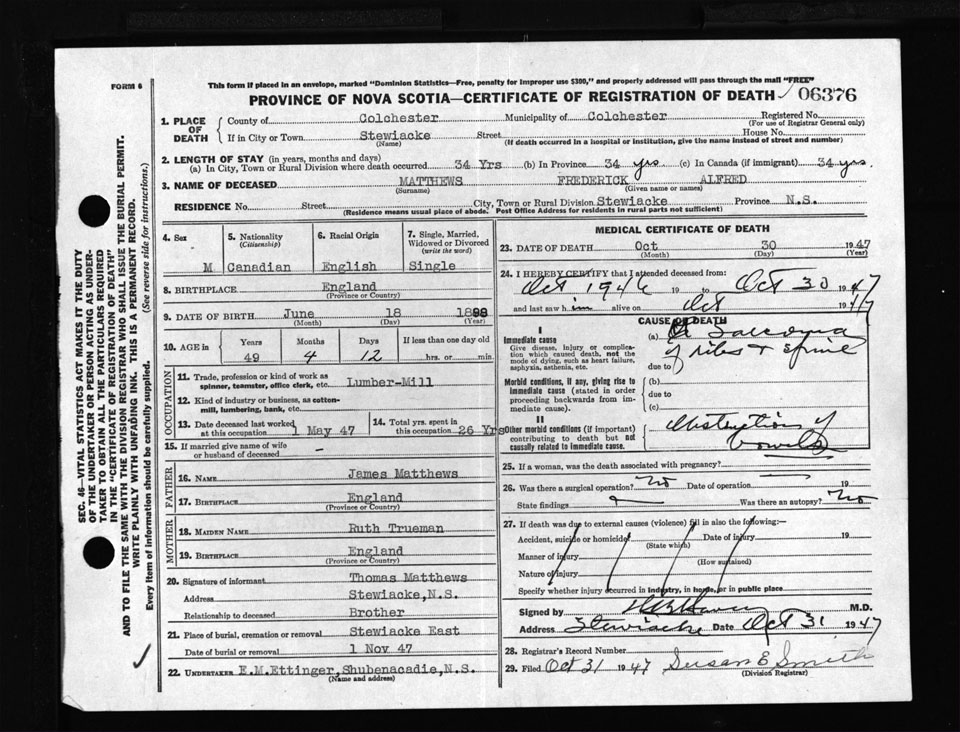 This form if placed in an envelope, marked "Dominion Statistics—Free, penalty for improper use $300," and properly addressed will pass through the mail "FREE"
FORM 6
PROVINCE OF NOVA SCOTIA—CERTIFICATE OF REGISTRATION OF DEATH 06376
SEC. 46—VITAL STATISTICS ACT MAKES IT THE DUTY
OF THE UNDERTAKER OR PERSON ACTING AS UNDER-
TAKER TO OBTAIN ALL THE PARTICULARS REQUIRED
IN THE "CERTIFICATE OF REGISTRATION OF DEATH"
AND TO FILE THE SAME WITH THE DIVISION REGISTRAR WHO SHALL ISSUE THE BURIAL PERMIT.
WRITE PLAINLY WITH UNFADING INK. THIS IS A PERMANENT RECORD.
Every item of information should be carefully supplied. (See reverse side for instructions.)
1. PLACE OF DEATH
County of Colchester Municipality of Colchester Registered No.
(For use of Registrar General only)
If in City or Town Stewiacke Street House No.
(Name) (If death occurred in a hospital or institution, give the name instead of street and number)
2. LENGTH OF STAY (in years, months and days)
(a) In City, Town or Rural Division where death occurred 34 Yrs (b) In Province 34 yrs (c) In Canada (if immigrant) 34 yrs.
3. NAME OF DECEASED MATTHEWS FREDERICK ALFRED
(Surname) (Given name or names)
RESIDENCE No. Street City, Town or Rural Division Stewiacke Province N.S.
(Residence means usual place of abode. Post Office Address for residents in rural parts not sufficient)
4. Sex 5. Nationality (Citizenship) 6. Racial Origin 7. Single, Married, Widowed or Divorced (write the word)
M Canadian English Single
8. BIRTHPLACE England
(Province or Country)
9. DATE OF BIRTH June 18 1898
(Month) (Day) (Year)
10. AGE in Years Months Days If less than one day old
49 4 12 hrs. or min.
OCCUPATION
11. Trade, profession or kind of work as spinner, teamster, office clerk, etc. Lumber-Mill
12. Kind of industry or business, as cotton-mill, lumbering, bank, etc.
13. Date deceased last worked at this occupation 1 May 47 14. Total yrs. spent in this occupation 26 Yrs
15. If married give name of wife or husband of deceased
FATHER
16. NAME James Matthews
17. BIRTHPLACE England
(Province or Country)
MOTHER
18. MAIDEN NAME Ruth Trueman
19. BIRTHPLACE England
(Province or Country)
20. Signature of informant Thomas Matthews
Address Stewiacke, N.S.
Relationship to deceased Brother
21. Place of burial, cremation or removal Stewiacke East
Date of burial or removal 1 Nov 47
22. UNDERTAKER E.M.Ettinger, Shubenacadie, N.S.
(Name and address)
MEDICAL CERTIFICATE OF DEATH
23. DATE OF DEATH Oct 30 1947
(Month) (Day) (Year)
24. I HEREBY CERTIFY that I attended deceased from:
Oct 1946 19 to Oct 30 1947
and last saw him alive on Oct 1947
CAUSE OF DEATH
I
Immediate cause
Give disease, injury or complica-
tion which caused death, not the
mode of dying, such as heart failure,
asphyxia, asthenia, etc.
(a) Sarcoma
of ribs & spine
due to
Morbid conditions, if any, giving rise to
immediate cause (stated in order
proceeding backwards from im-
mediate cause).
(b)
due to
(c)
II
Other morbid conditions (if important)
contributing to death but not
causally related to immediate cause.
Obstruction of
bowels
25. If a woman, was the death associated with pregnancy?
26. Was there a surgical operation? No Date of operation 19
State findings Was there an autopsy? No
27. If death was due to external causes (violence) fill in also the following:—
Accident, suicide or homicide Date of injury 19
(State which)
Manner of injury
(How sustained)
Nature of injury
Specify whether injury occurred in industry, in home, or in public place
Signed by M.D.
Address Stewiacke Date Oct 31 1947
28. Registrar's Record Number
29. Filed Oct 31 1947 Susan E Smith
(Division Registrar)